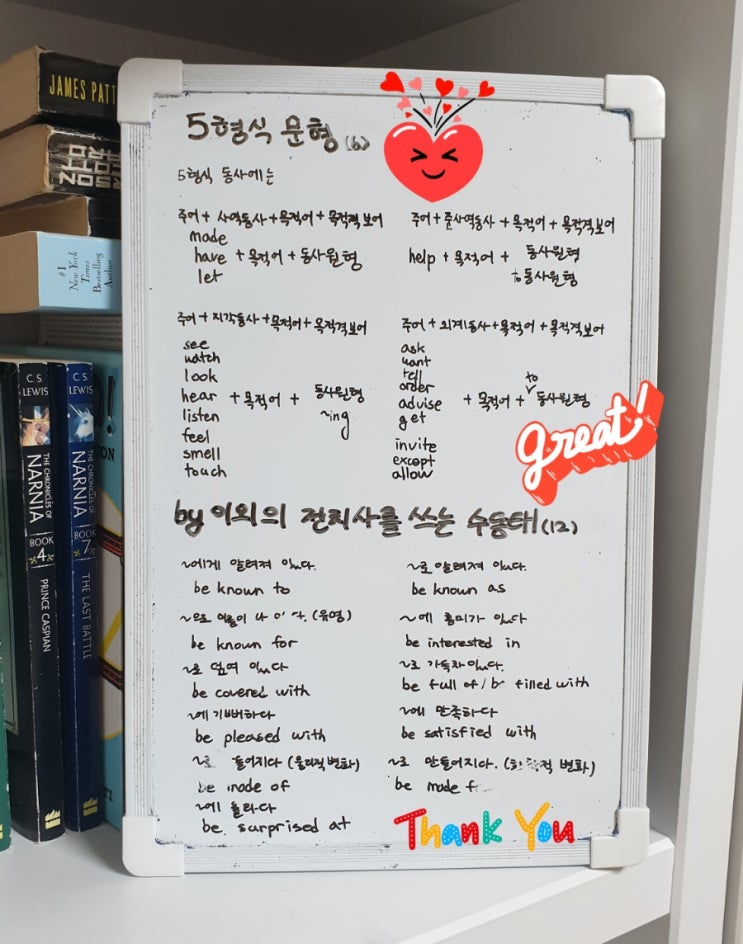 JAMES PATT
#1
New York
Times
Bestselling
Author
C.S.
LEWIS
THE CHRONICLES OF
NARNIA
BOOK
4
PRINCE CASPIAN
C.S.
LEWIS
THE CHRONICLES OF
NARNIA
BOOK
7
THE LAST BATTLE
5형식 문형 (6)
5형식 동사에는
주어 + 사역동사 + 목적어 + 목적격 보어
made
have + 목적어 + 동사원형
let
주어 + 준사역동사 + 목적어 + 목적격보어
help + 목적어 + 동사원형
to 동사원형
주어 + 지각동사 + 목적어 + 목적격보어
see
watch
look
hear + 목적어 + 동사원형
listen ~ing
feel
smell
touch
주어 + 동사 + 목적어 + 목적격보어
ask
want
tell
order
advise + 목적어 + to 동사원형
get
invite
except
allow
great!
by 이외의 전치사를 쓰는 수동태 (12)
~에게 알려져 있다.
be known to
~로 알려져 있다.
be known as
~으로 이름이 나 다. (유명)
be known for
~에 흥미가 있다
be interested in
~로 덮여 있다
be covered with
~로 가득차있다.
be full of / be filled with
~에 기뻐하다
be pleased with
~에 만족하다
be satisfied with
~로 들어지다 (물리적 변화)
be made of
~로 만들어지다. (화학적 변화)
be made f
~에 놀라다
be surprised at
Thank You